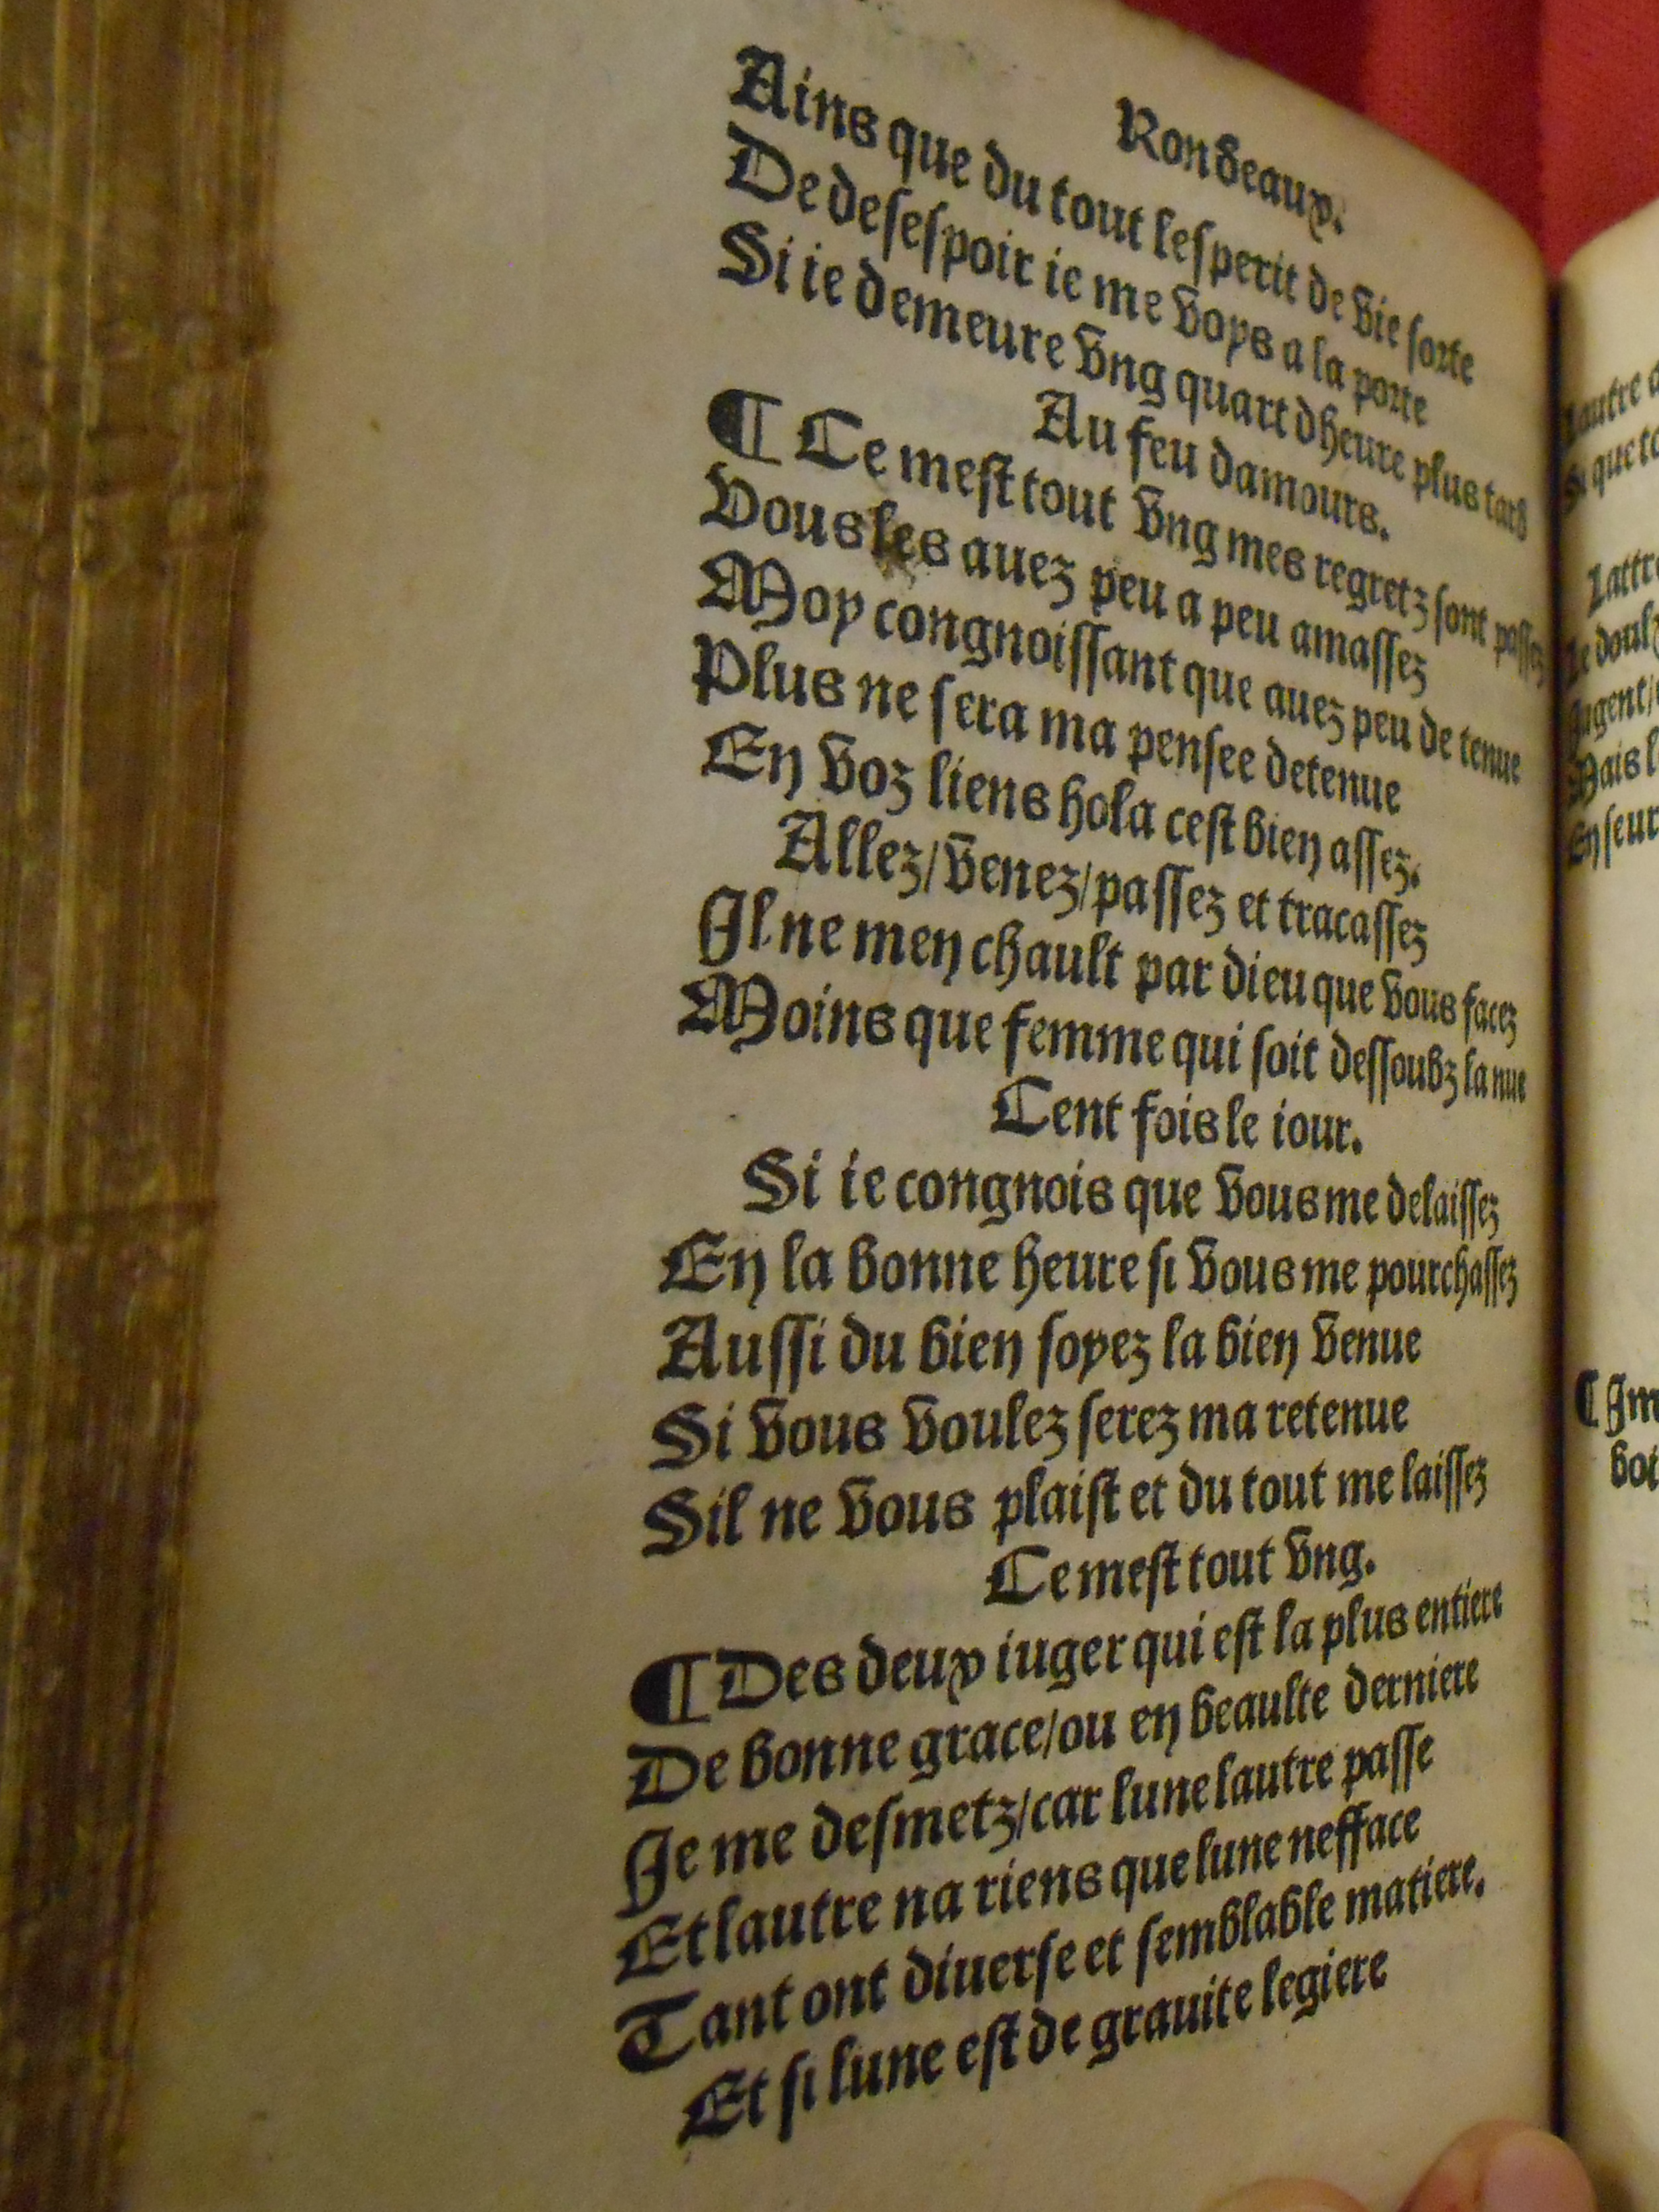 Rondeaux.
Ains que du tout lesperit de vie sorte
De desespoir ie me voys a la porte
Si ie demeure vng quart dheure plus tard
Au feu damours.
¶ Ce mest tout vng mes regretz sont passez
Vous les auez peu a peu amassez
Moy congnoissant que auez peu de tenue
Plus ne sera ma pensee detenue
En voz liens hola cest bien assez.
Allez/venez/passez et tracassez
Il ne men chault par dieu que vous facez
Moins que femme qui soit dessoubz la nue
Cent fois le iour.
Si ie congnois que vous me delaissez
En la bonne heure si vous me pourchassez
Aussi du bien soyez la bien venue
Si vous voulez serez ma retenue
Sil ne vous plaist et du tout me laissez
Ce mest tout vng.
¶ Des deux iuger qui est la plus entiere
De bonne grace/ou en beaulte derniere
Je me desmetz/car lune lautre passe
Et lautre na riens que lune nefface
Tant ont diuerse et semblable matiere.
Et si lune est de grauite legiere
Lautre
Si que
Lattre
Le
Mais
En seur
¶ Im